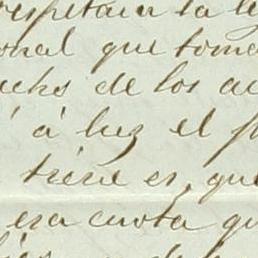 respetar la le
onal que toma
ucho de los au
á luz el p
tiene es, que
esa cuota qu